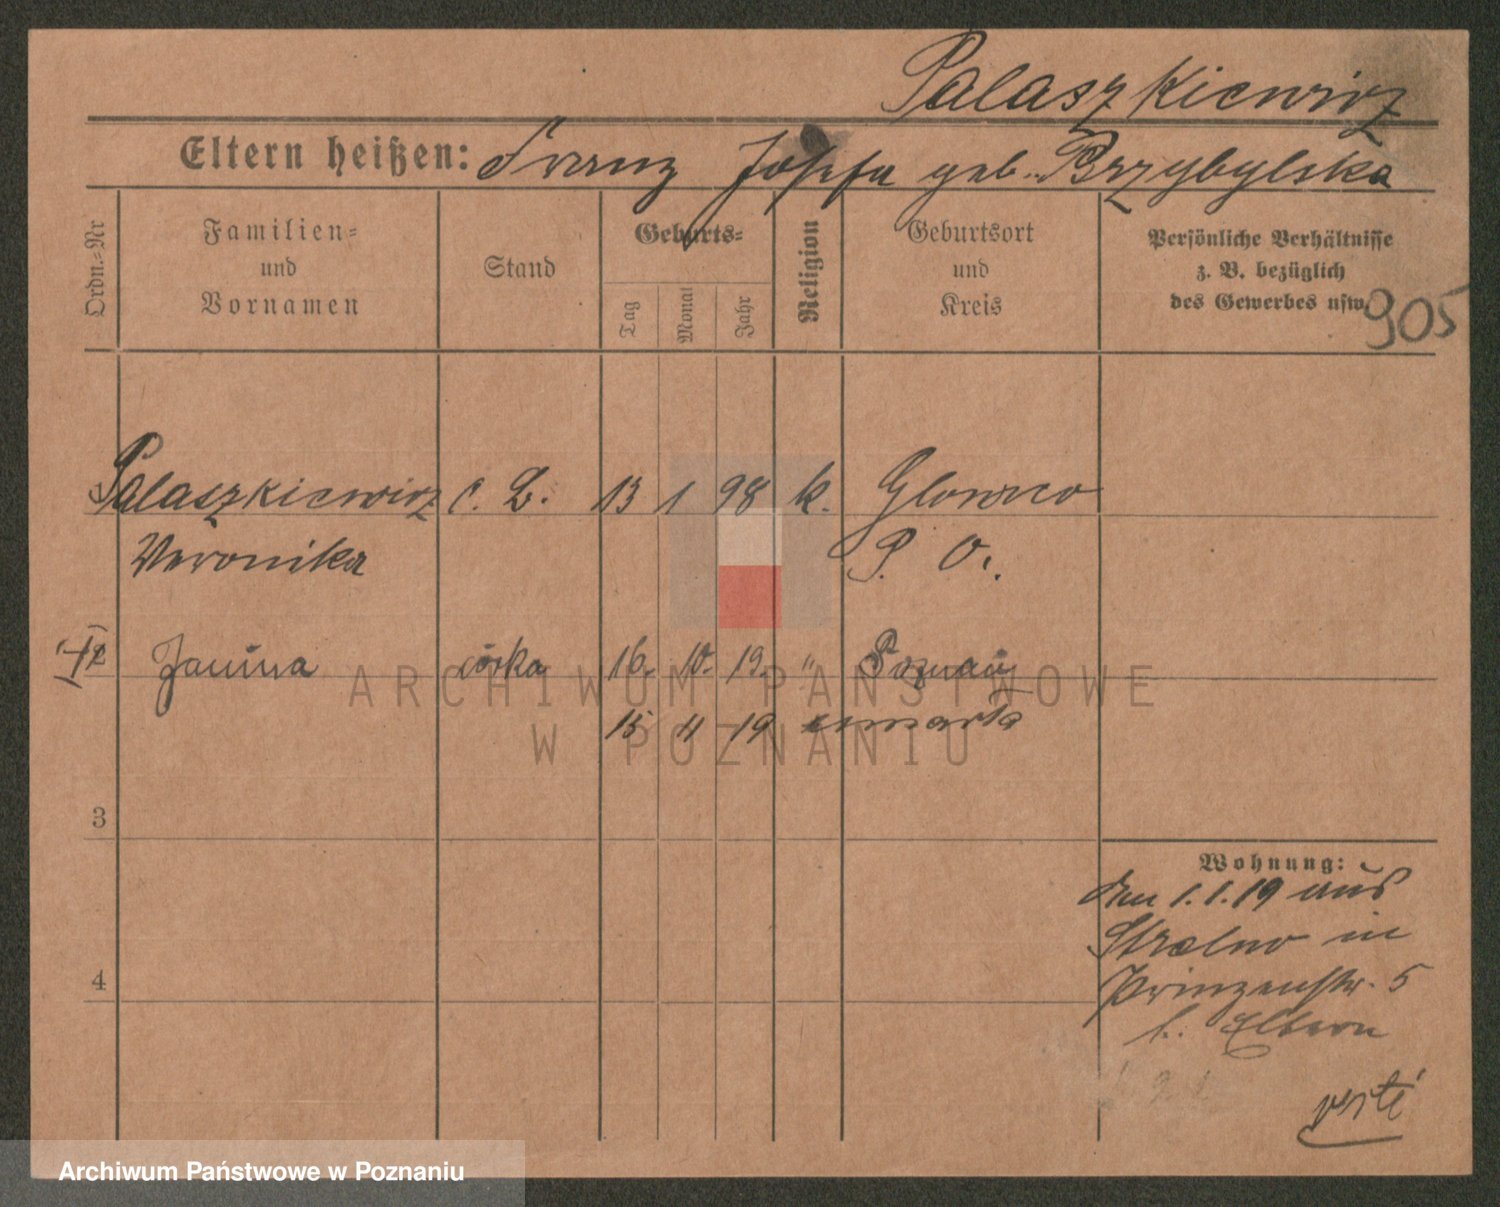 Palaszkiewicz
Eltern heißen: Franz Josefa geb. Przybylska
Ordn.=Nr
Familien=
und
Vornamen
Stand
Geburts=
Tag
Monat
Jahr
Religion
Geburtsort
und
Kreis
Persönliche Verhältnisse
z. B. bezüglich
des Gewerbes usw.
905
Palaszkiewicz 13 1 98 k. Glowno
Veronika P. O.
2 Janina córka 16. 10. 19. " Poznań
15 11 19 zmarła
3
4
Wohnung:
den 1.1.19 aus
Strelno in
Prinzenstr. 5
b. Eltern
verte
ARCHIWUM PAŃSTWOWE
W POZNANIU
Archiwum Państwowe w Poznaniu